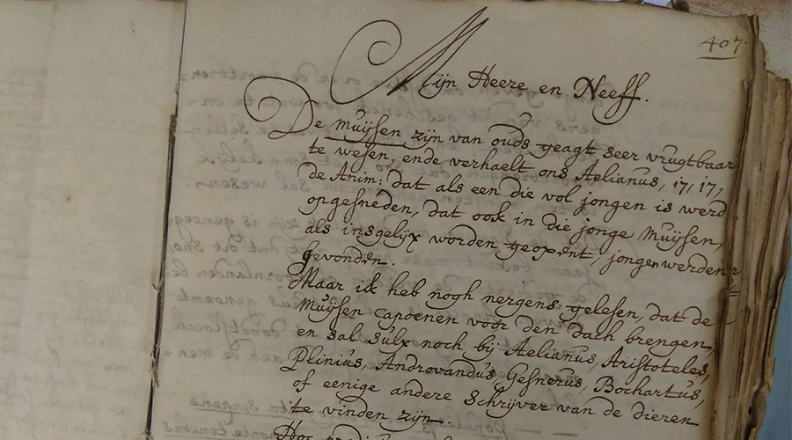 407.
Mijn Heere en Neeff.
De muijsen zijn van ouds geagt seer vrugtbaar
te wesen, ende verhaelt ons Aelianus, 17, 17,
de Anim: dat als een die vol jongen is werd
opgesneden, dat ook in die jonge muijsen,
als insgelijx worden geopent, jongen werden
gevonden.
Maar ik heb nogh nergens gelesen, dat de
muijsen capoenen voor den dach brengen,
en sal sulx noch bij Aelianus, Aristoteles,
Plinius, Androvandus, Gesnerus, Bochartus,
of eenige andere schrijver van de dieren
te vinden zijn.